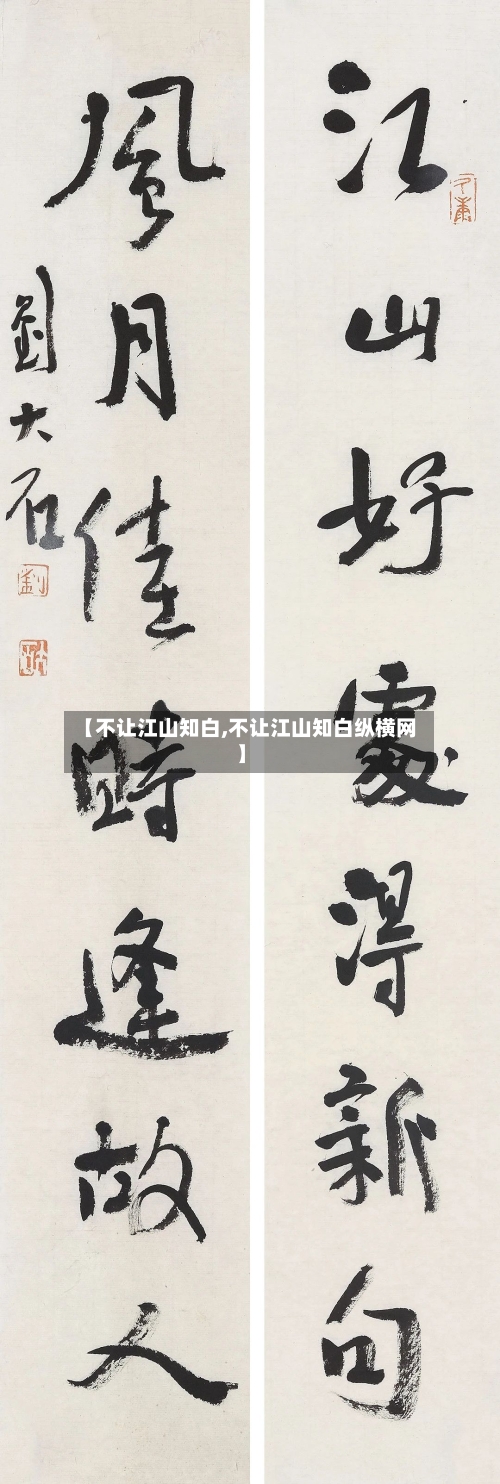 江山好處得新句
風月佳時逢故人
劉大石
【不让江山知白,不让江山知白纵横网
】